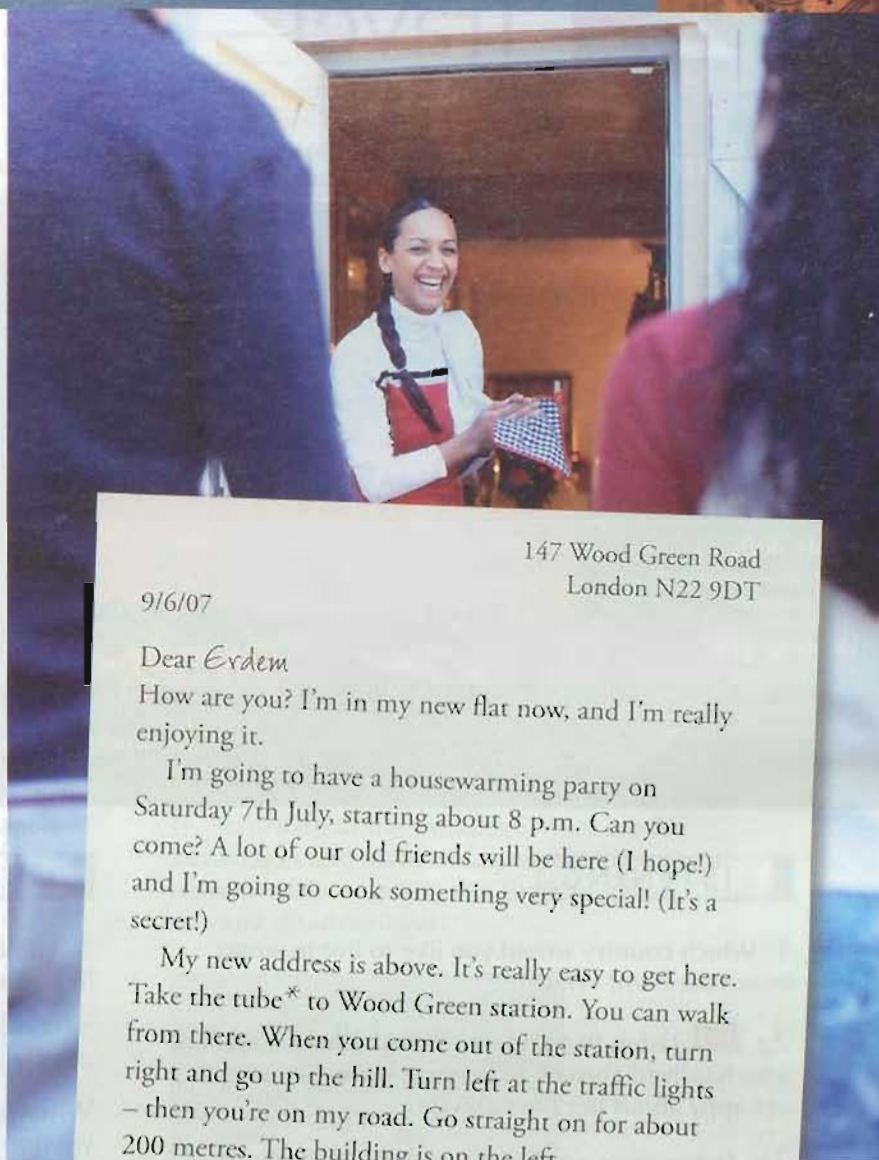 147 Wood Green Road
London N22 9DT
9/6/07
Dear Erdem
How are you? I'm in my new flat now, and I'm really
enjoying it.
I'm going to have a housewarming party on
Saturday 7th July, starting about 8 p.m. Can you
come? A lot of our old friends will be here (I hope!)
and I'm going to cook something very special! (It's a
secret!)
My new address is above. It's really easy to get here.
Take the tube* to Wood Green station. You can walk
from there. When you come out of the station, turn
right and go up the hill. Turn left at the traffic lights
– then you're on my road. Go straight on for about
200 metres. The building is on the left